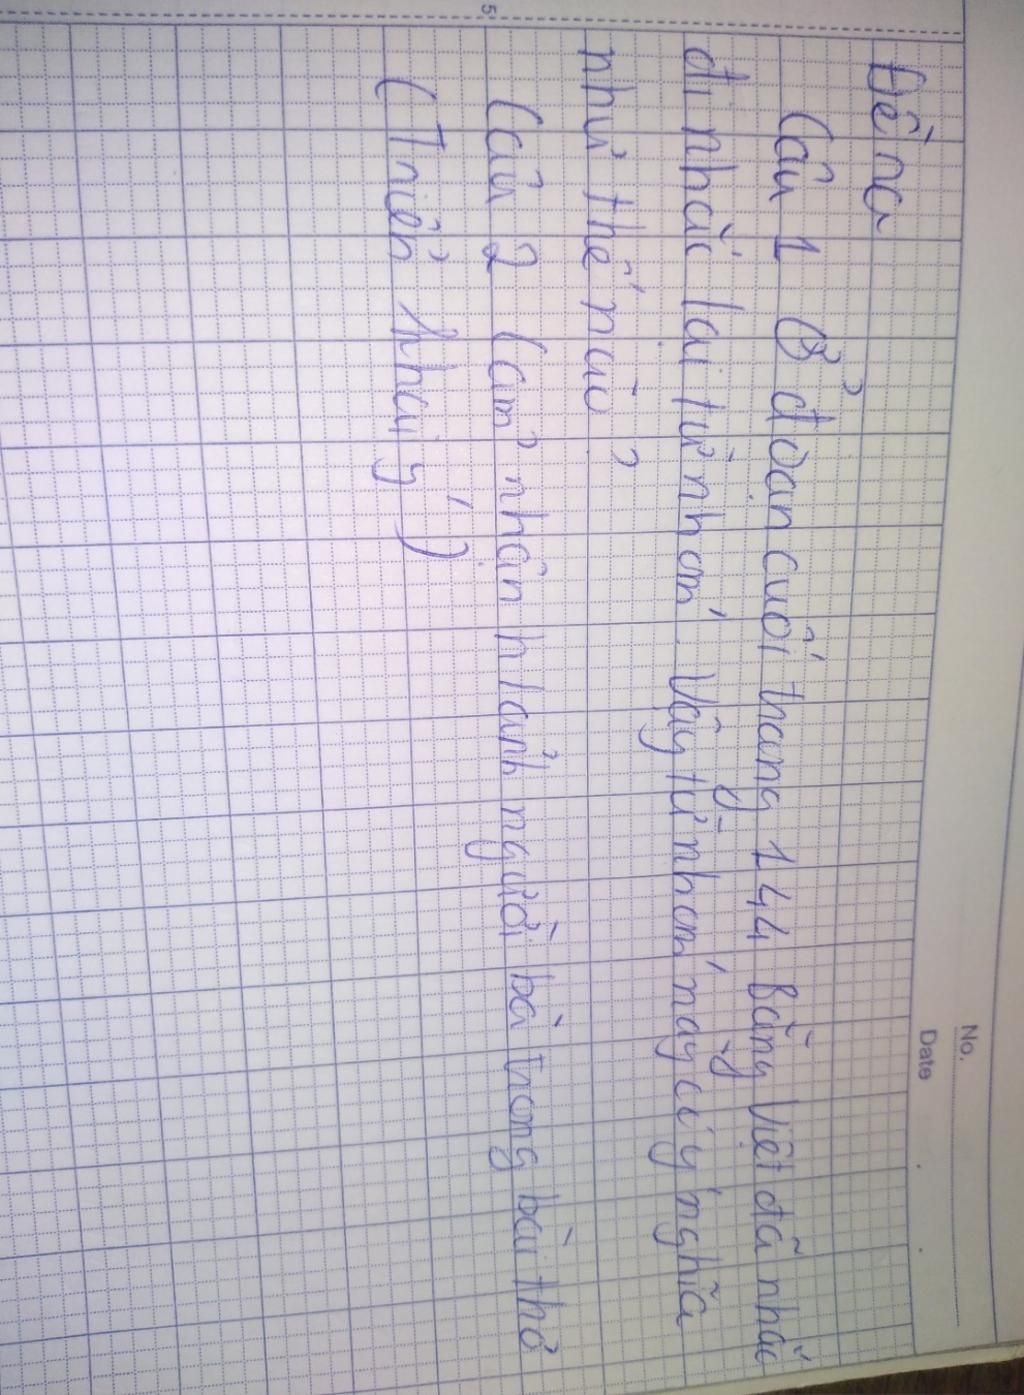 No.
Date
5
Đề ra
Câu 1 Ở đoạn cuối trang 144 Bằng Việt đã nhắc
đi nhắc lại từ nhóm. Vậy từ nhóm này có ý nghĩa
như thế nào ?
Câu 2 Cảm nhận h/ảnh người bà trong bài thơ
(Triển khai ý)